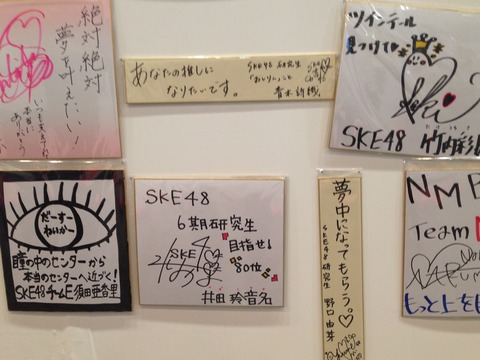 絶対絶対
夢を叶えたい!
いつも支えてくれて
本当に
ありがとう!
あなたの推しに
なりたいです。
SKE48 研究生
青木 詩織
ツインテール
見つけてね
SKE48 竹内彩
だーすー
ねいかー
瞳の中のセンターから
本当のセンターへ近づく!
SKE48チームE 須田亜香里
SKE48
6期研究生
目指せ!
80位
井田 玲音名
夢中になってもらう。♡
SKE48 研究生 野口 由芽
NMB
Team N
もっと上を